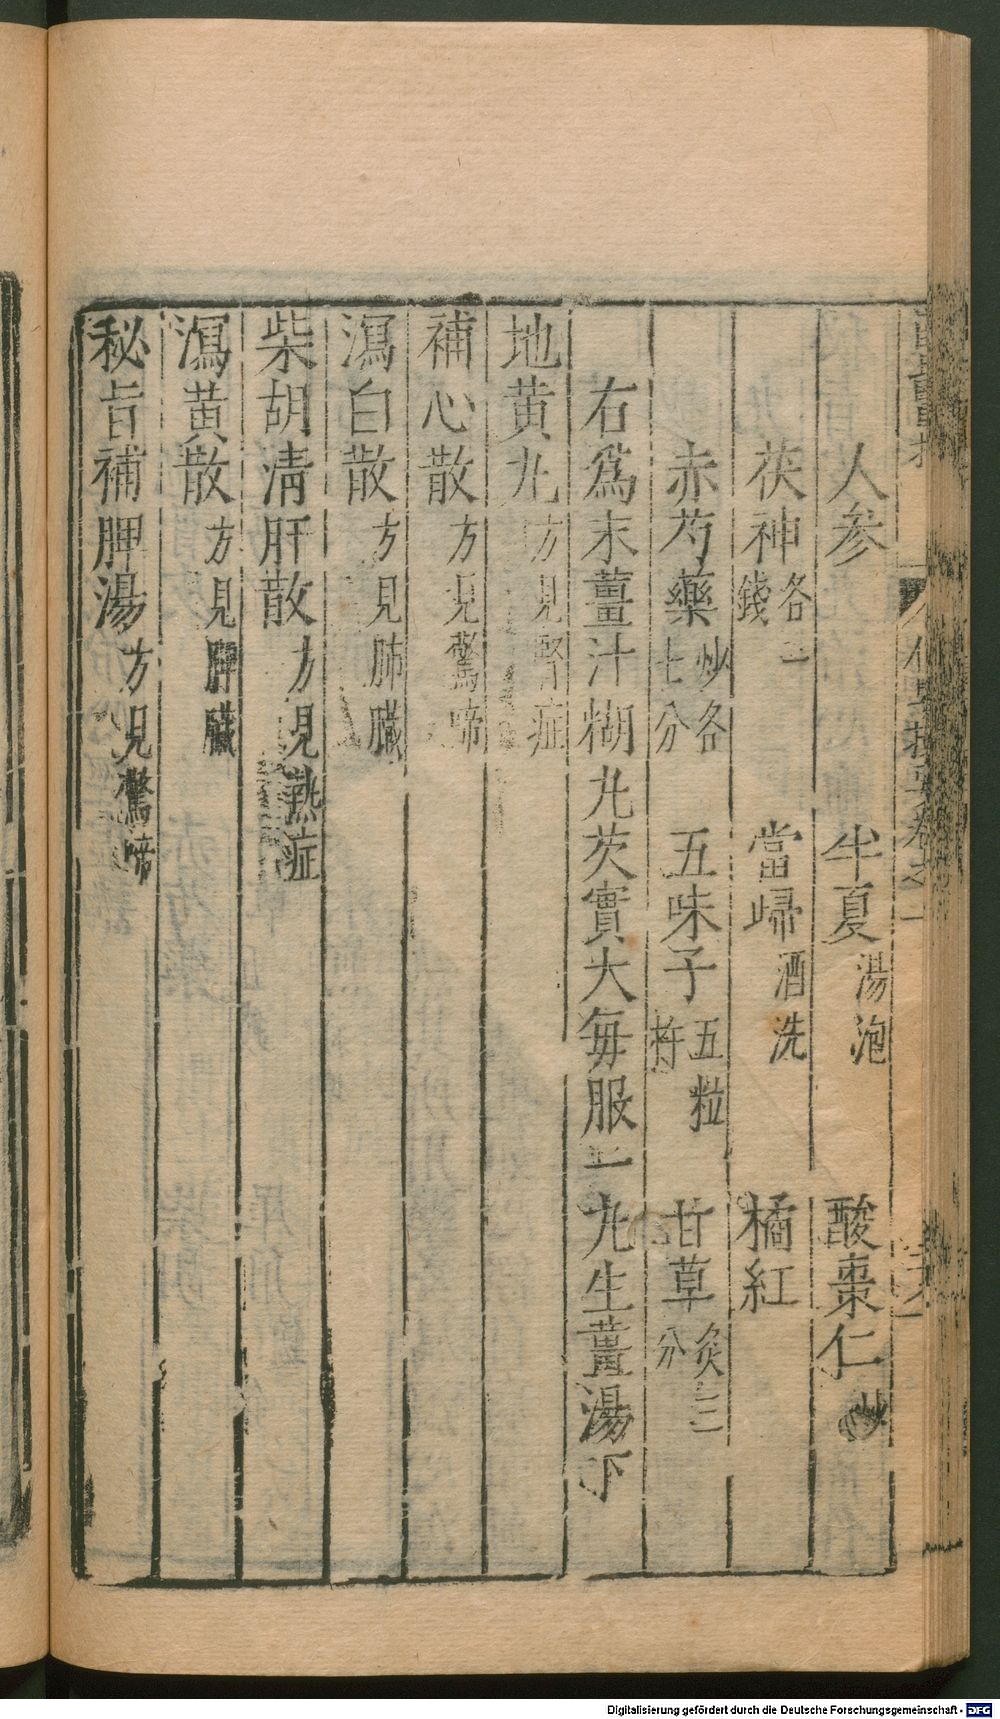 人參 半夏湯泡 酸棗仁炒
茯神各一錢 當歸酒洗 橘紅
赤芍藥炒各七分 五味子五粒杵 甘草炙三分
右爲末薑汁糊丸芡實大每服一丸生薑湯下
地黄丸方見腎症
補心散方見驚啼
瀉白散方見肺臟
柴胡清肝散方見熱症
瀉黄散方見脾臟
秘旨補脾湯方見驚啼
Digitalisierung gefördert durch die Deutsche Forschungsgemeinschaft - DFG